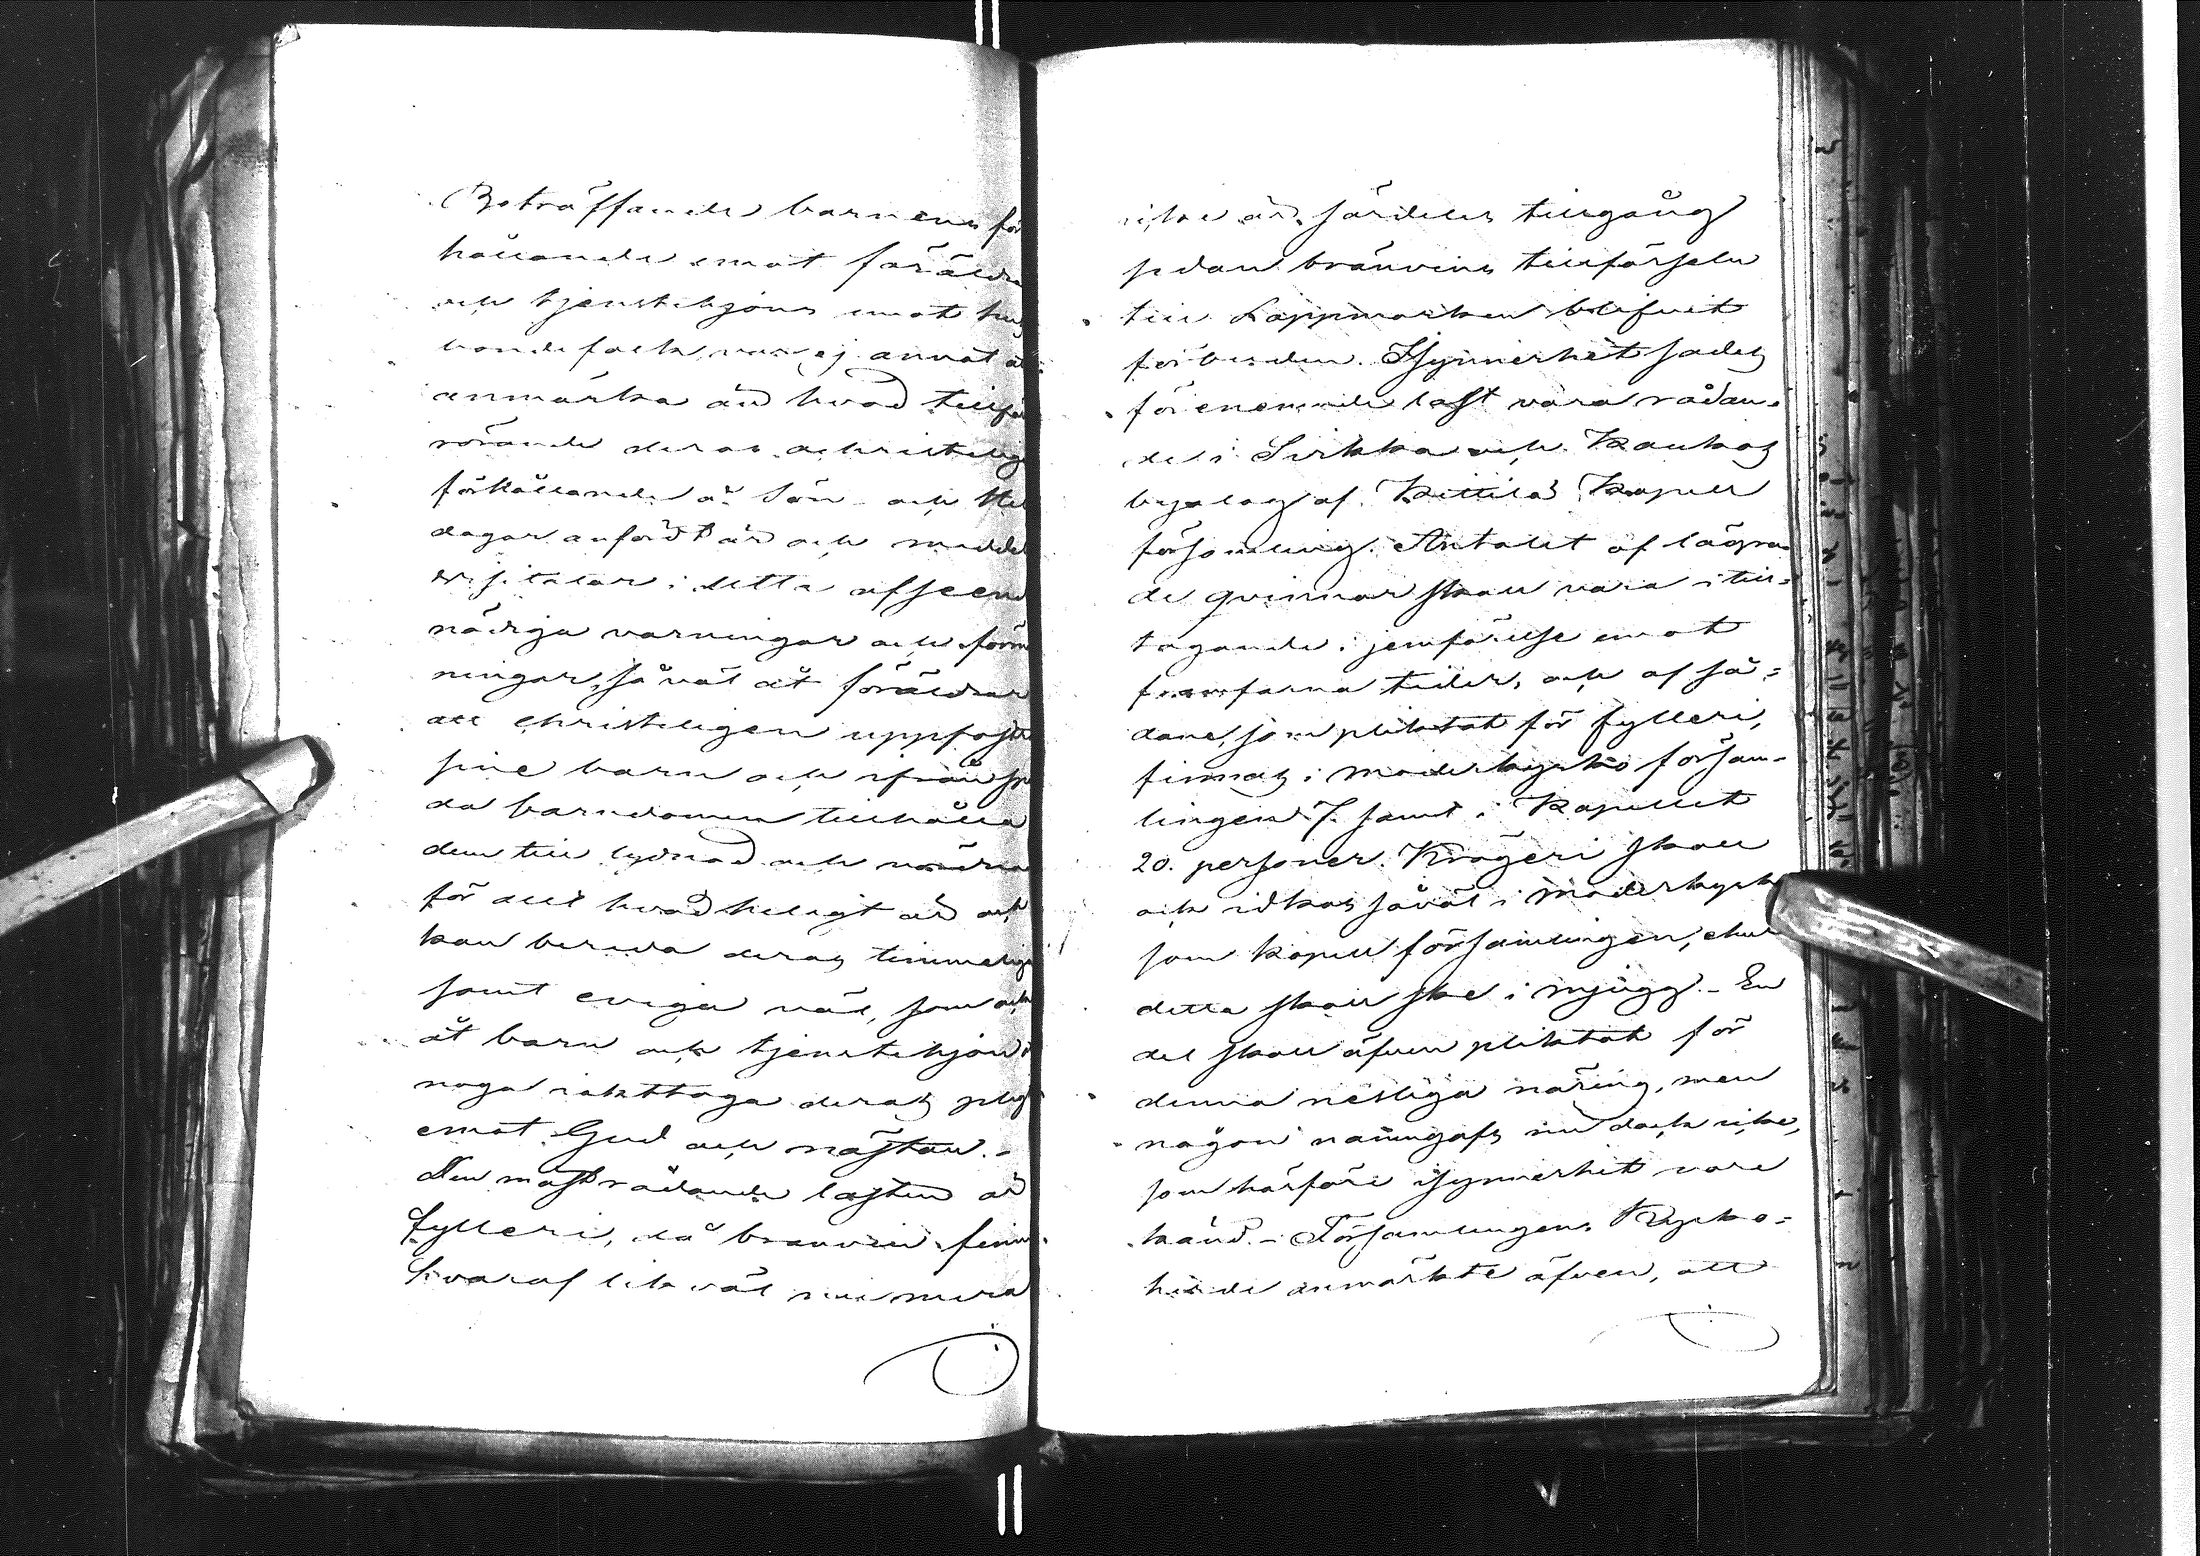 Beträffande barnens för
hållande emot föräldra
och tjenstehjons emot hus
bondefolk, var ej annat at
anmärka än hvad tillfö
rörande deras ochristelig
förhållande å Sön- och Hel
dagar anfördt är och meddel
visitator i detta afseend
nödiga varningar och förm
ningar, så väl åt föräldrar
att christeligen uppfostr
sine barn och ifrån sp
da barndomen tillhålla
dem till lydnad och vördna
för allt hvad heligt är och
kan bereda deras timmelig
samt eviga väl, som ock
åt barn och tjenstehjon i
noga iakttaga deras plig
emot Gud och nästan. -
Den mäst rådande lasten är
fylleri, då brännvin finns
hvaraf lik väl nu mera
icke är särdeles tillgång
sedan bränvins tillförseln
till Lappmarken blifvit
förbuden. Isynnerhet sades
förenemnde last vara rådan-
de i Sirkka och Kaukos
byalag af Kittilä Kapell
församling. Antalet af lägra
de qvinnor skall vara i till-
tagande i jemförelse emot
framfarna tider, och af så-
dane, som pliktat för fylleri,
finnas i moderkyrko försam-
lingen 7. samt i Kapellet
20. personer. Krögeri skall
ock idkas såväl i moderkyrk
som kapell församlingen, ehur
detta skall ske i mjugg. - En
del skall äfven pliktat för
denna nesliga näring, men
någon namngafs nu dock icke,
som härföre isynnerhet vore
känd. - Församlingens Kyrko-
herde anmärkte äfven, att